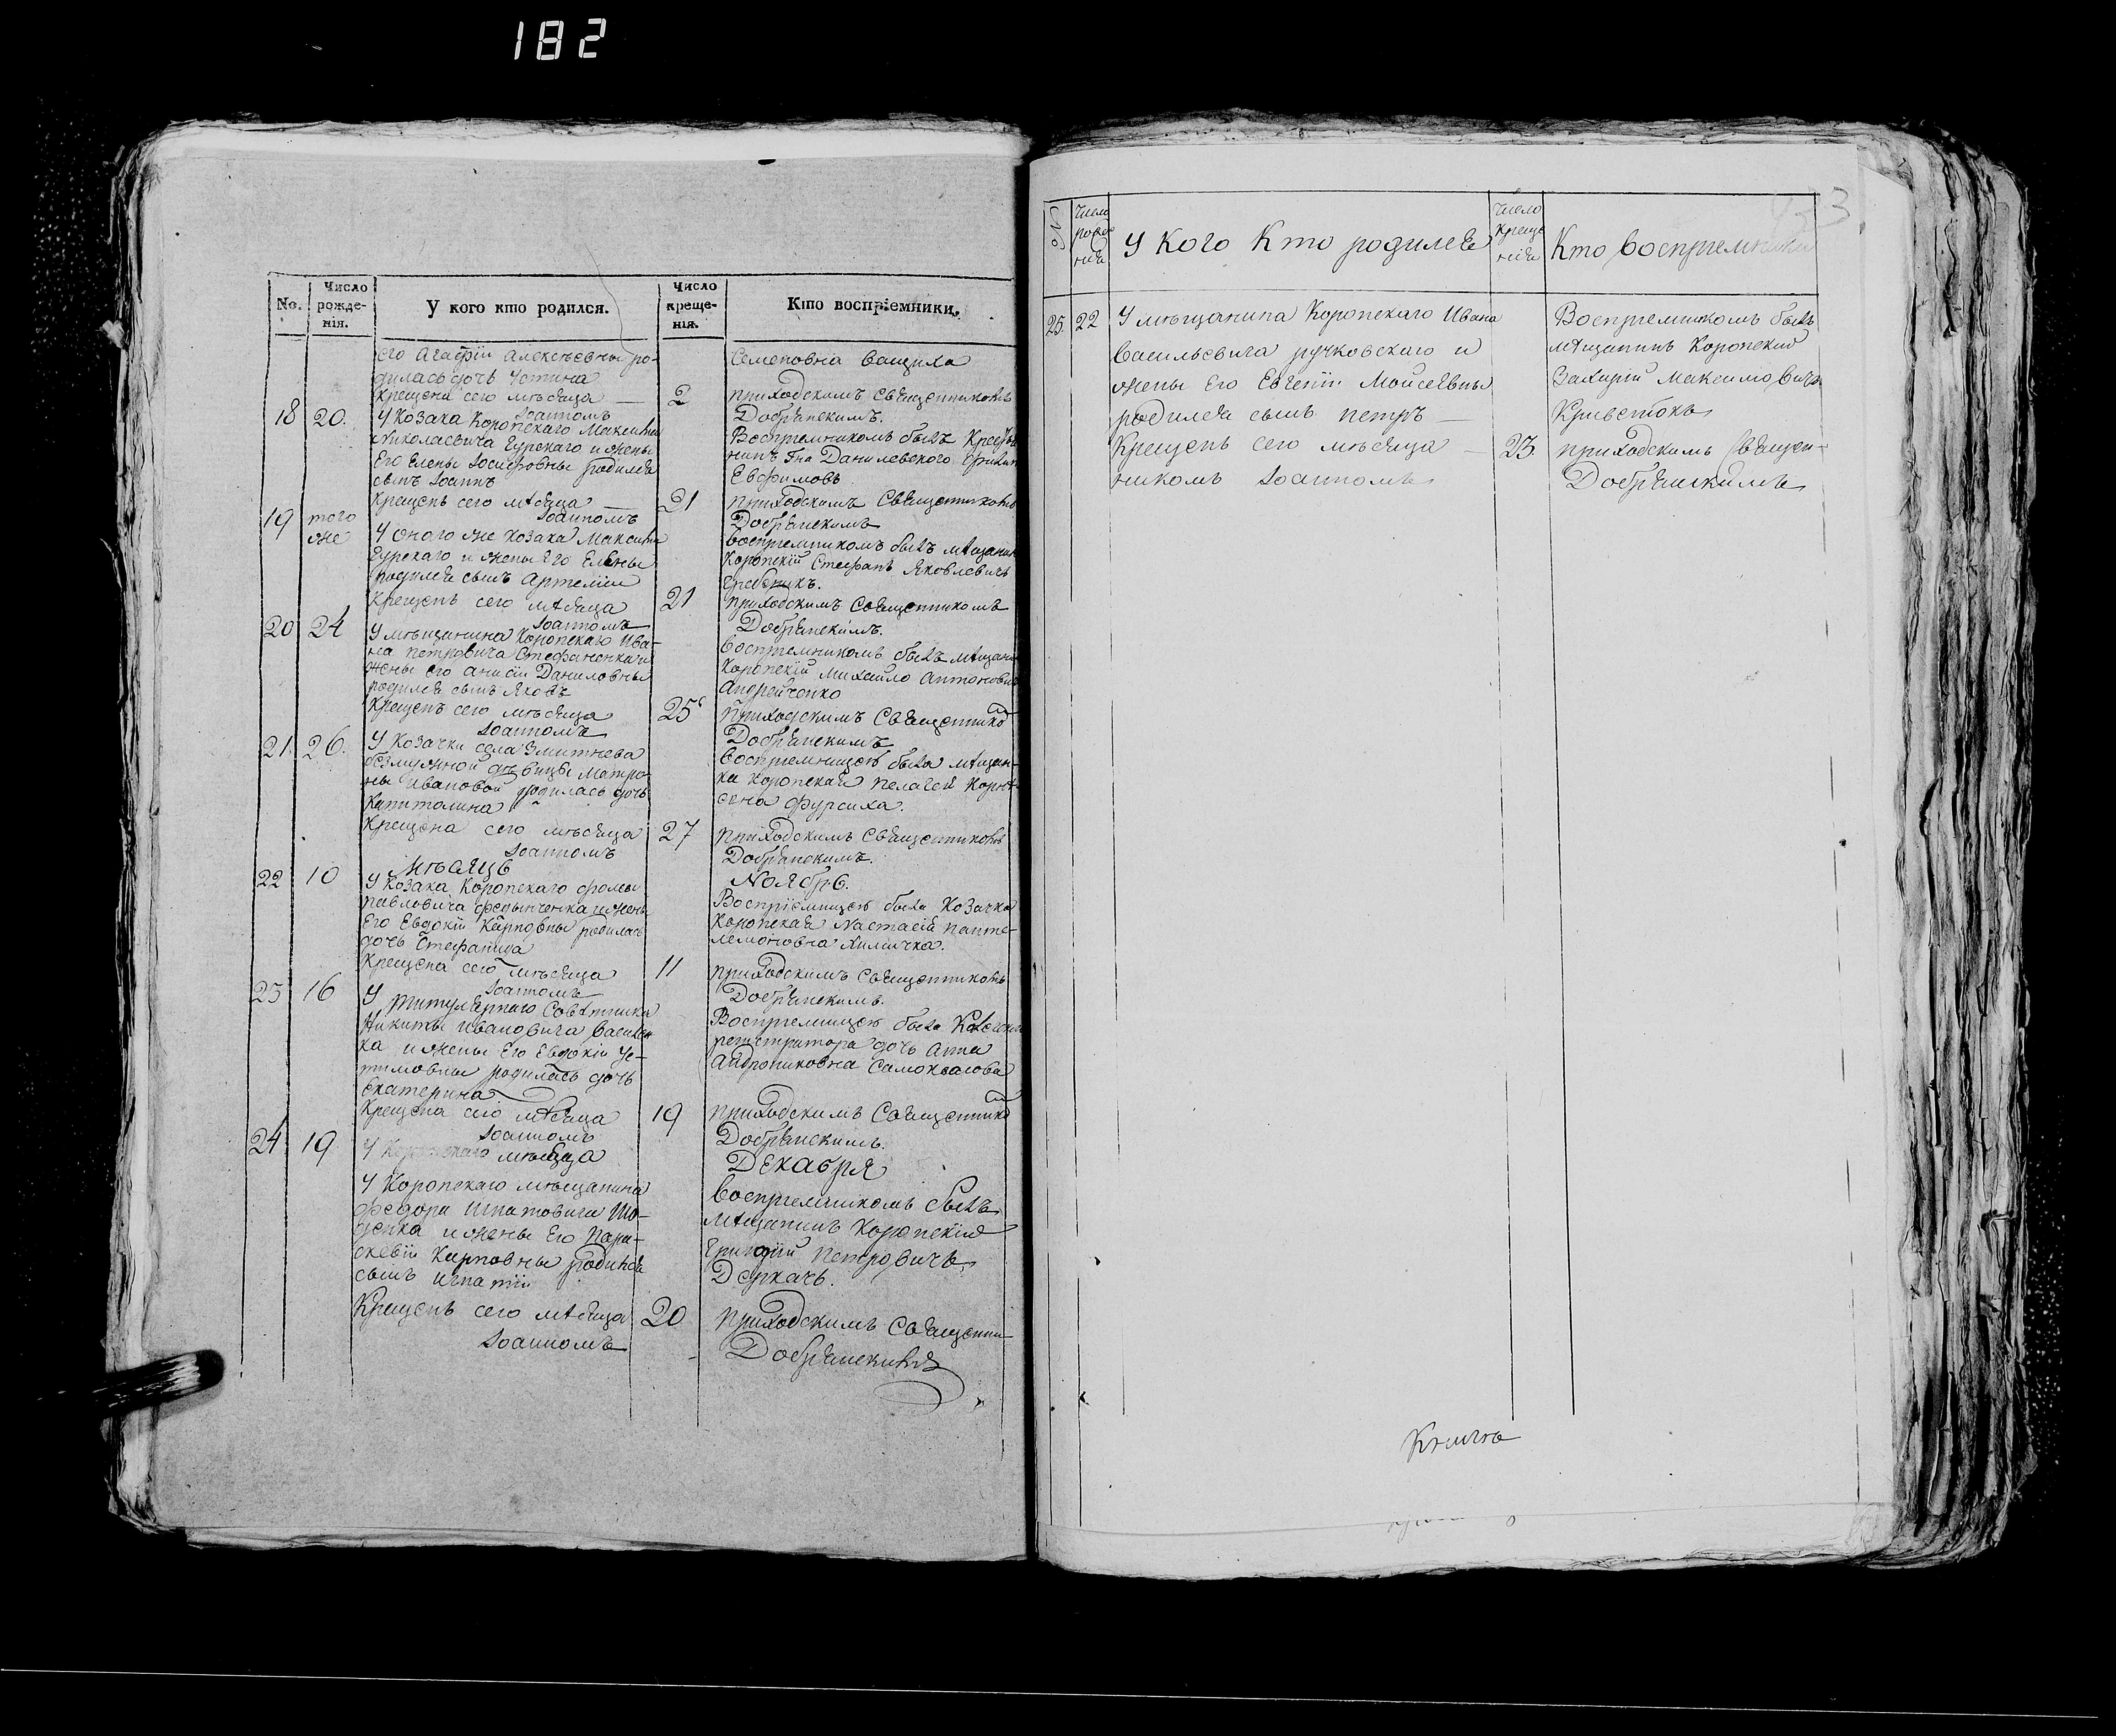 182
No.
Число рожде- нія.
У кого кто родился.
Число креще- нія.
Кто воспріемники.
его Агафіи Алексѣевны ро-
Семеновна Ващила
дилась дочь Устина
крещена сего мѣсяца — 2 приходскимъ Священникомъ
Іоанномъ Добрянскимъ.
18 20. У козака Коропскаго Максима
Николаевича Гурскаго и жены
Его Елены Іосифовны родился
сынъ Іоаннъ
Воспріемникомъ былъ Крестья
нинъ Гна Данилевского
Евфимовъ
Крещенъ сего мѣсяца 21 приходскимъ Священникомъ
Іоанномъ Добрянскимъ
19 того же У оного же козака Максима
Гурскаго и жены Его Елены
родился сынъ Артемій
воспріемникомъ былъ мѣщанин
Коропскій Стефанъ Яковлевичъ
Гребеникъ.
Крещенъ сего мѣсяца 21 приходскимъ Священникомъ
Іоанномъ Добрянскимъ.
20 24 У мѣщанина Коропскаго Ива-
на Петровича Стефаненка и
жены его Анисіи Даниловны
родился сынъ Яковъ
воспріемникомъ былъ мѣщани
Коропскій Михайло Антонович
Андрейченко
Крещенъ сего мѣсяца 25 приходскимъ Священнико
Іоанномъ Добрянскимъ
21. 26. У Козачки села Змитнева
безмужной дѣвицы Матро-
ны Ивановой родилась дочь
Капитолина
воспріемницею была мѣщан-
ка Коропская Пелагея Корнѣ-
ева Фурсиха.
Крещена сего мѣсяца 27 приходскимъ Священникомъ
Іоанномъ Добрянскимъ.
Мѣсяцъ Ноябрь.
22 10 У Козака Коропскаго Фомы
Павловича Федынченка и жены
Его Евдокіи Карповны родилась
дочь Стефанида
Воспріемницею была Козачка
Коропская Настасія Панте-
лемоновна Химичка.
Крещена сего мѣсяца 11 приходскимъ Священникомъ
Іоанномъ Добрянскимъ.
23 16 У титулярнаго Совѣтника
Никиты Ивановича Василен
ка и жены Его Евдокіи Ус-
тимовны родилась дочь
Екатерина
Воспріемницею была
регистратора дочь Анна
Андрониковна Самоквасова
Крещена сего мѣсяца 19 приходскимъ Священнико
Іоанномъ Добрянскимъ.
24 19 У Коропскаго мѣсяца Декабря
У Коропскаго мѣщанина
Федора Игнатовича
и жены Его Пара-
скевіи Карповны родился
сынъ Игнатій
воспріемникомъ былъ
мѣщанинъ Коропскій
Григорій Петровичъ
Деркачъ.
Крещенъ сего мѣсяца 20 приходскимъ Священни-
Іоанномъ Добрянскимъ
№
Число рожде нія
У кого Кто родился
Число Креще нія
Кто воспріемники
25 22 У мѣщанина Коропскаго Ивана
Васильевича Ручковскаго и
жены Его Евгеніи Моисеевны
родился сынъ Петръ —
Воспріемникомъ былъ
мѣщанинъ Коропскій
Захарій Максимовичъ
Кривстокъ
Крещенъ сего мѣсяца — 23 приходскимъ Священ-
никомъ Іоанномъ Добрянскимъ